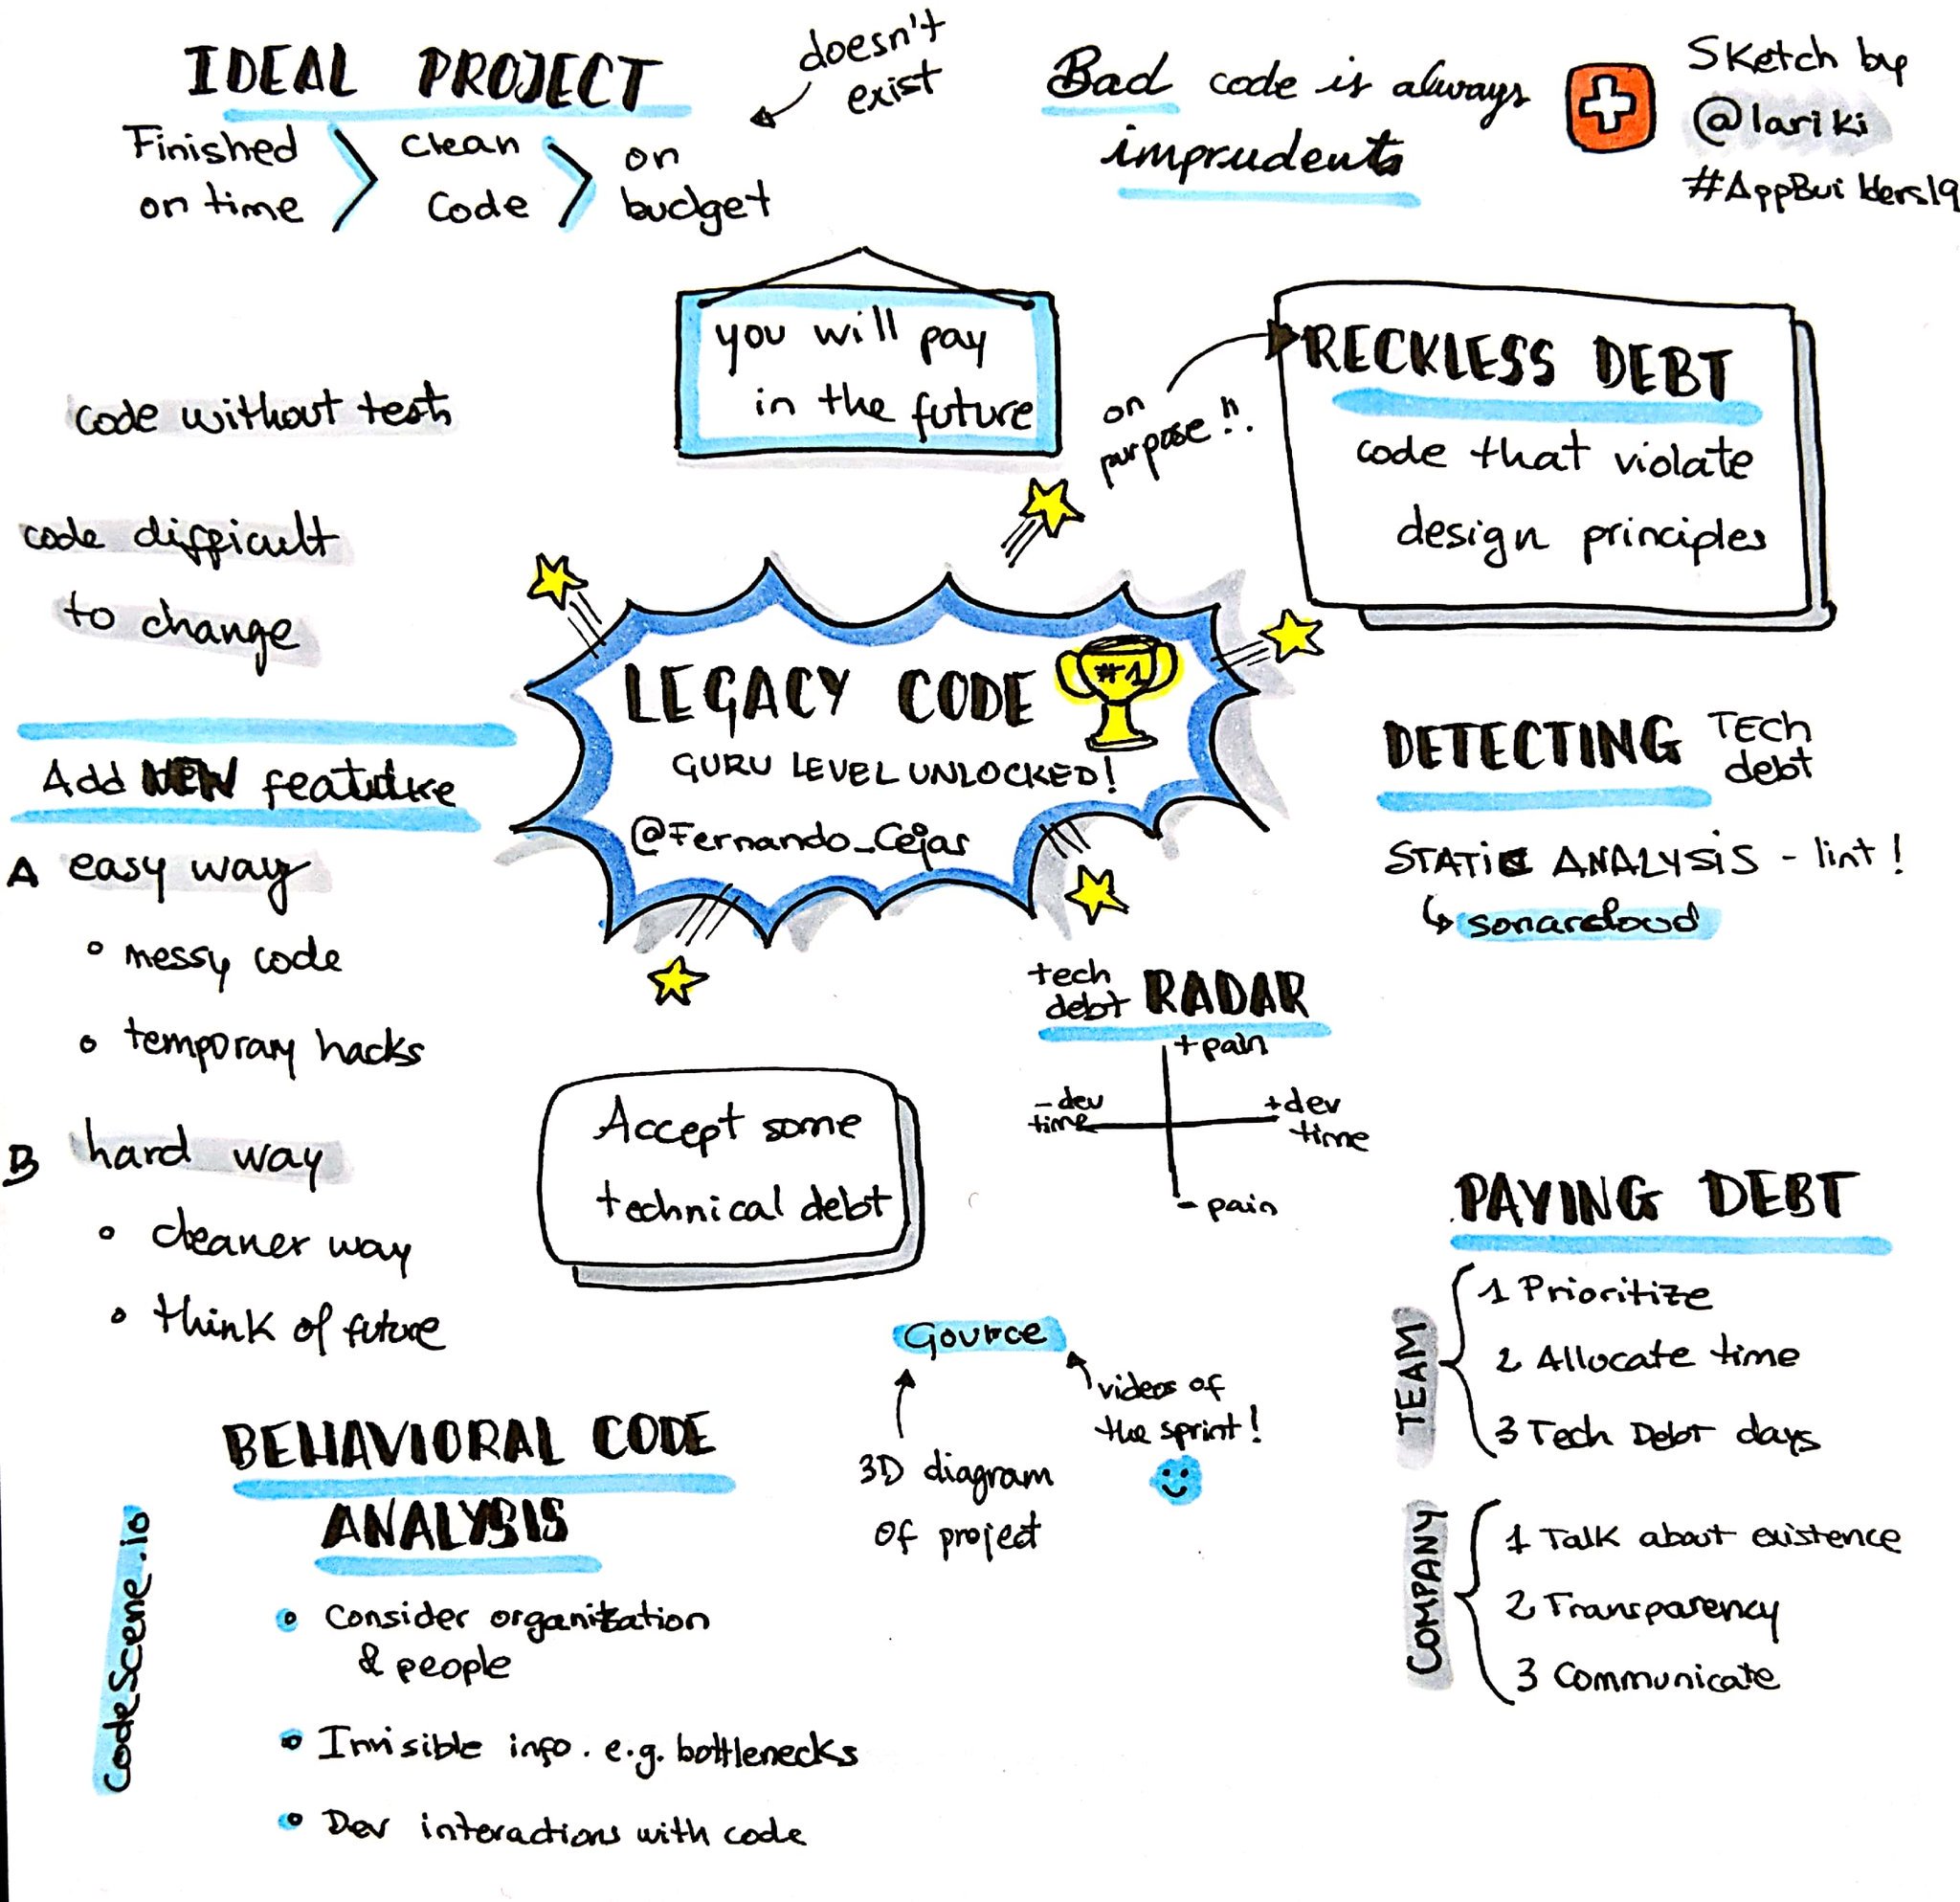 IDEAL PROJECT
doesn't
exist
Finished
on time
clean
code
on
budget
Bad code is always
imprudents
Sketch by
@lariki
#AppBuilders19
you will pay
in the future
on
purpose!!
RECKLESS DEBT
code that violate
design principles
code without tests
code difficult
to change
LEGACY CODE
#1
GURU LEVEL UNLOCKED!
@Fernando_Cejas
Add NEW feature
A easy way
messy code
temporary hacks
B hard way
cleaner way
think of future
DETECTING TECH
debt
STATIC ANALYSIS - lint!
sonarcloud
tech
debt RADAR
+pain
-dev
time
+dev
time
- pain
Accept some
technical debt
PAYING DEBT
TEAM
1 Prioritize
2 Allocate time
3 Tech Debt days
COMPANY
1 Talk about existence
2 Transparency
3 Communicate
Gource
videos of
the sprint!
3D diagram
of project
BEHAVIORAL CODE
ANALYSIS
CodeScene.io
Consider organization
& people
Invisible info. e.g. bottlenecks
Dev interactions with code